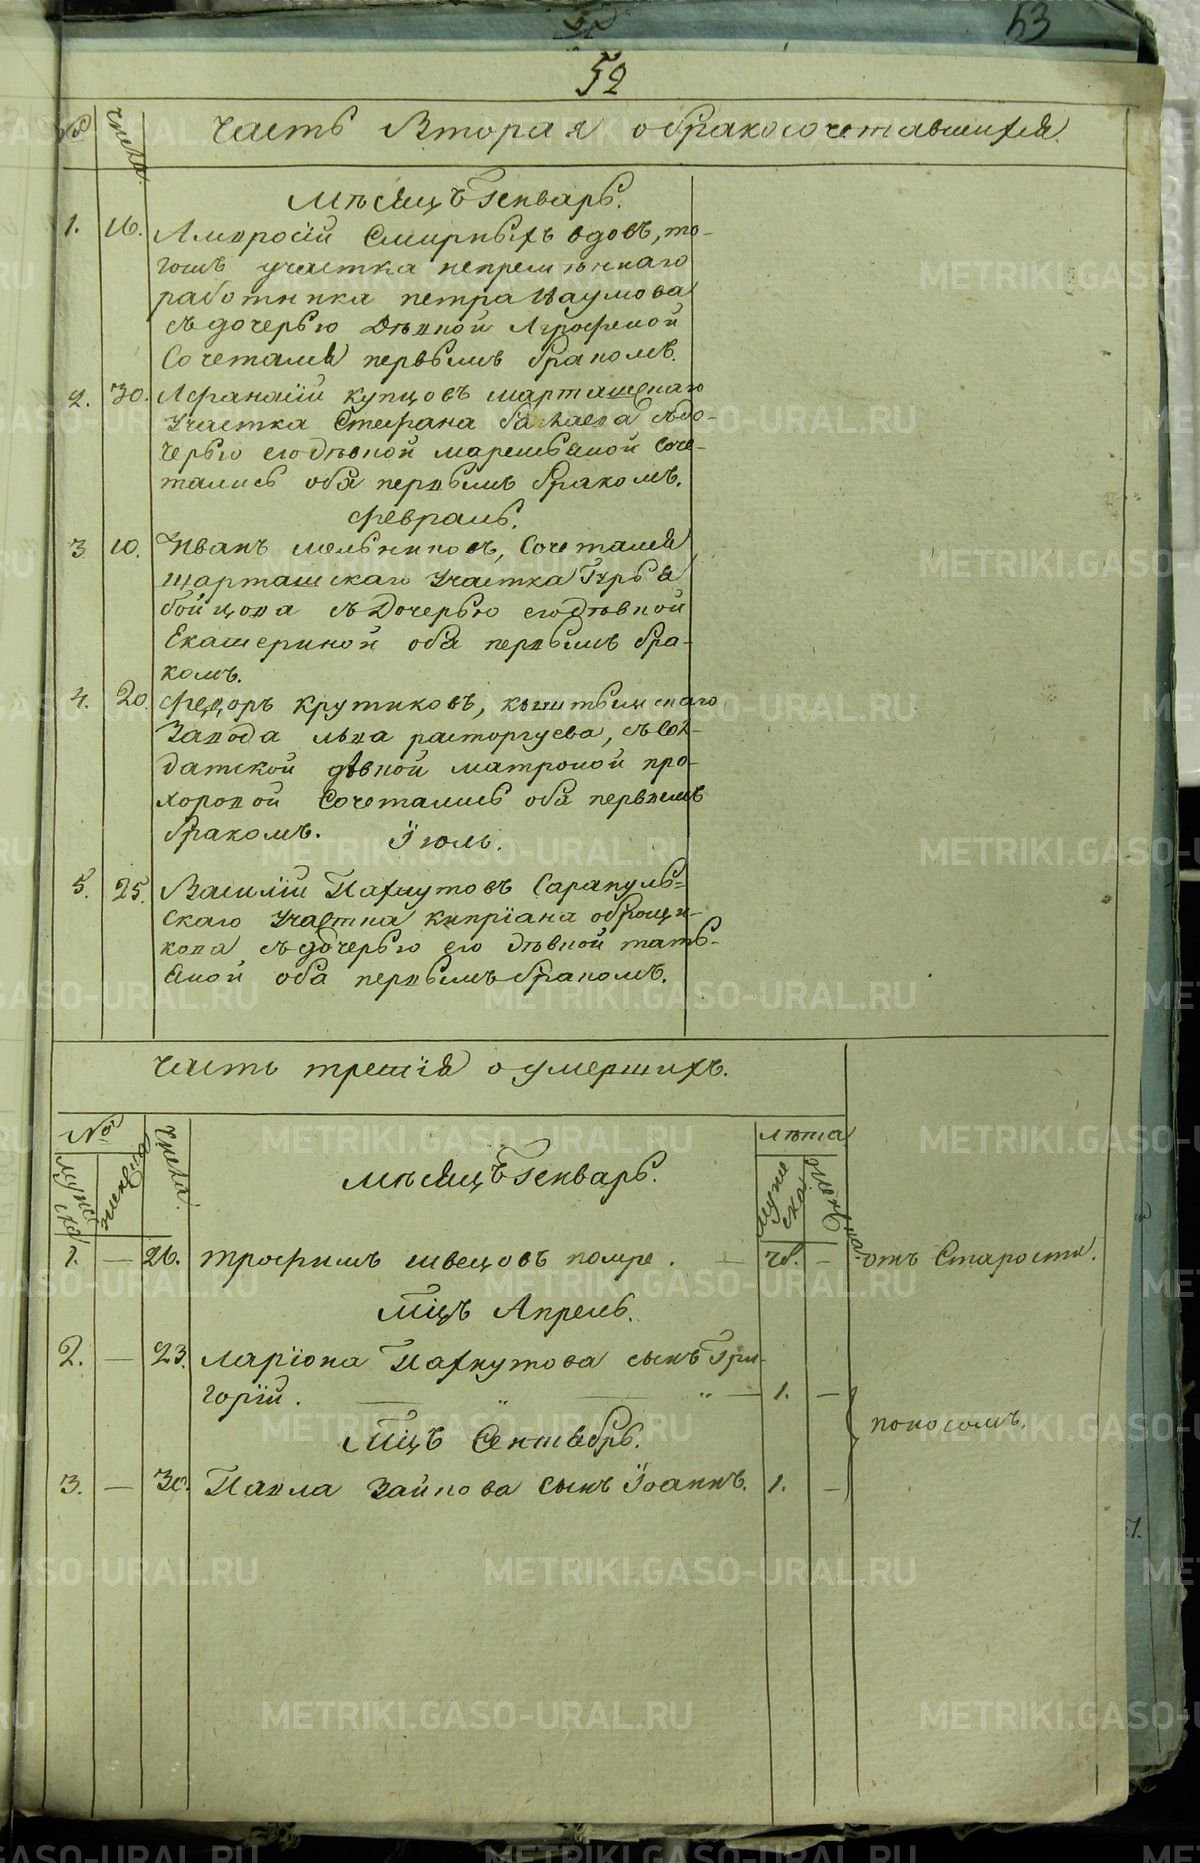 53
52
№ числа Часть Вторая о бракосочетавшихся.
Мѣсяцъ Генварь.
1. 16. Амвросій Смирныхъ вдовъ, то-
гожъ участка непремѣннаго
работника петра Наумова
съ дочерью Дѣвкой Агрофеной
Сочетался первымъ бракомъ.
2. 30. Афанасій купцовъ шарташскаго
Участка Стефана съ до-
черью его дѣвкой маремьяной Соче-
тались оба первымъ бракомъ.
февраль.
3 10. Иванъ мельниковъ, Сочетался
шарташскаго Участка Гурья
бойцова съ Дочерью его дѣвкой
Екатериной оба первымъ бра-
комъ.
4. 20. Федоръ крутиковъ, кыштымскаго
Завода льва расторгуева, съ Сол-
датской дѣвкой матроной про-
хоровой Сочетались оба первымъ
бракомъ.
Іюль.
5. 25. Василій Пахтутовъ Сарапуль-
скаго Участка кипріана оброщи-
кова съ дочерью его дѣвкой тать-
яной оба первымъ бракомъ.
Часть третія о умершихъ.
№ числа лѣта
мужеска женска мужеска женска
мѣсяцъ Генварь.
1. — 26. трофимъ швецовъ помре. — 78. — отъ Старости.
Мцъ Апрель.
2. — 23. ларіона Пахтутова сынъ Гри-
горій. — „ — „ — 1. —
поносомъ.
Мцъ Сентябрь.
3. — 30. Павла Зайкова сынъ Іоаннъ. 1. —
METRIKI.GASO-URAL.RU